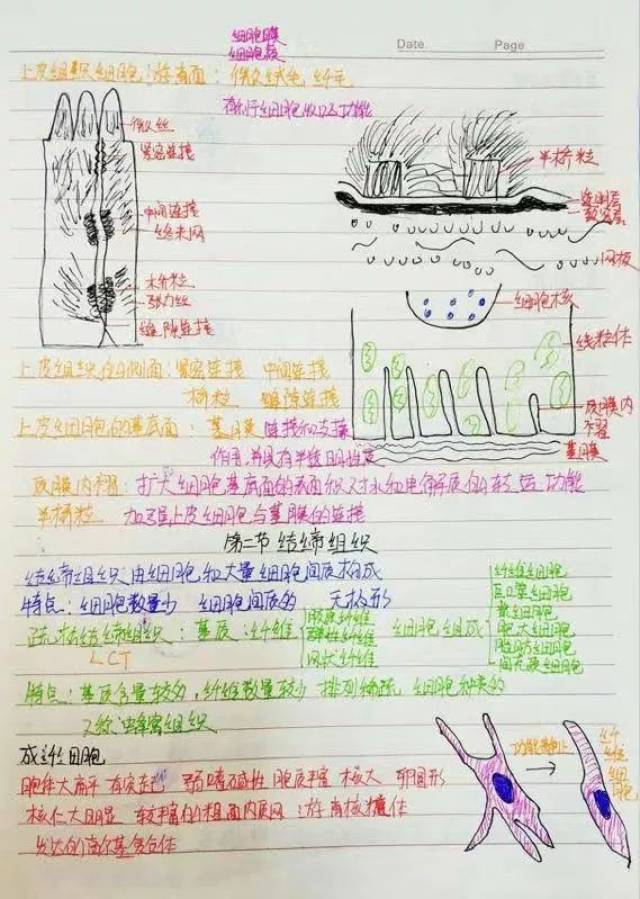 细胞膜
细胞质
Date
Page
上皮组织细胞：游离面：微绒毛 纤毛
微丝
紧密连接
中间连接
终末网
桥粒
张力丝
缝隙连接
半桥粒
透明层
致密层
网板
细胞核
线粒体
质膜内褶
基膜
上皮组织的侧面：紧密连接 中间连接
桥粒 缝隙连接
上皮细胞的基底面：基膜 链接和支撑
作用，并具有半透明性质
质膜内褶：扩大细胞基底面的表面积 对水和电解质的转运功能
半桥粒 加强上皮细胞与基膜的连接
第二节 结缔组织
结缔组织：由细胞和大量细胞间质构成
特点：细胞数量少 细胞间质多 无极形
疏松结缔组织：基质：纤维
胶原纤维
弹性纤维
网状纤维
细胞组成
纤维细胞
巨噬细胞
浆细胞
肥大细胞
脂肪细胞
间充质细胞
LCT
特点：基质含量较多，纤维数量较少 排列稀疏 细胞种类多
又称 蜂窝组织
成纤细胞
胞体大扁平 有突起 弱嗜碱性 胞质丰富 核大 卵圆形
核仁大明显 较丰富的粗面内质网；游离核糖体
发达的高尔基复合体
功能静止
纤维细胞